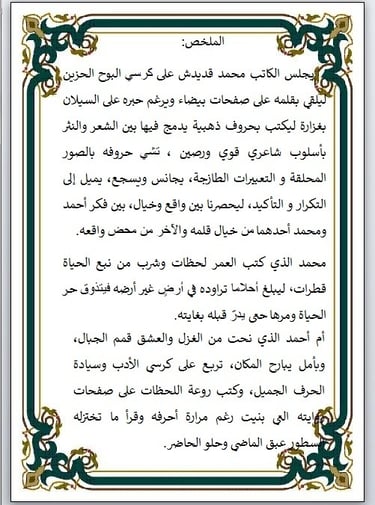 الملخص:
يجلس الكاتب محمد قديدش على كرسي البوح الحزين
ليلقي بقلمه على صفحات بيضاء ويرغم حبره على السيلان
بغزارة ليكتب بحروف ذهبية يدمج فيها بين الشعر والنثر
بأسلوب شاعري قوي ورصين ، تشي حروفه بالصور
المحلقة و التعبيرات الطازجة، يجانس ويسجع، يميل إلى
التكرار و التأكيد، ليحصرنا بين واقع وخيال، بين فكر أحمد
ومحمد أحدهما من خيال قلمه والآخر من محض واقعه.
محمد الذي كتب العمر لحظات وشرب من نبع الحياة
قطرات، ليبلغ أحلاما تراوده في أرض غير أرضه فيتذوق حر
الحياة ومرها حتى يدرّ قبله بغايته.
أم أحمد الذي نحت من الغزل والعشق قمم الجبال،
وبأمل يبارح المكان، تربع على كرسي الأدب وسيادة
الحرف الجميل، وكتب روعة اللحظات على صفحات
روايته التي بنيت رغم مرارة أحرفه وقرأ ما تختزله
السطور عبق الماضي وحلو الحاضر.